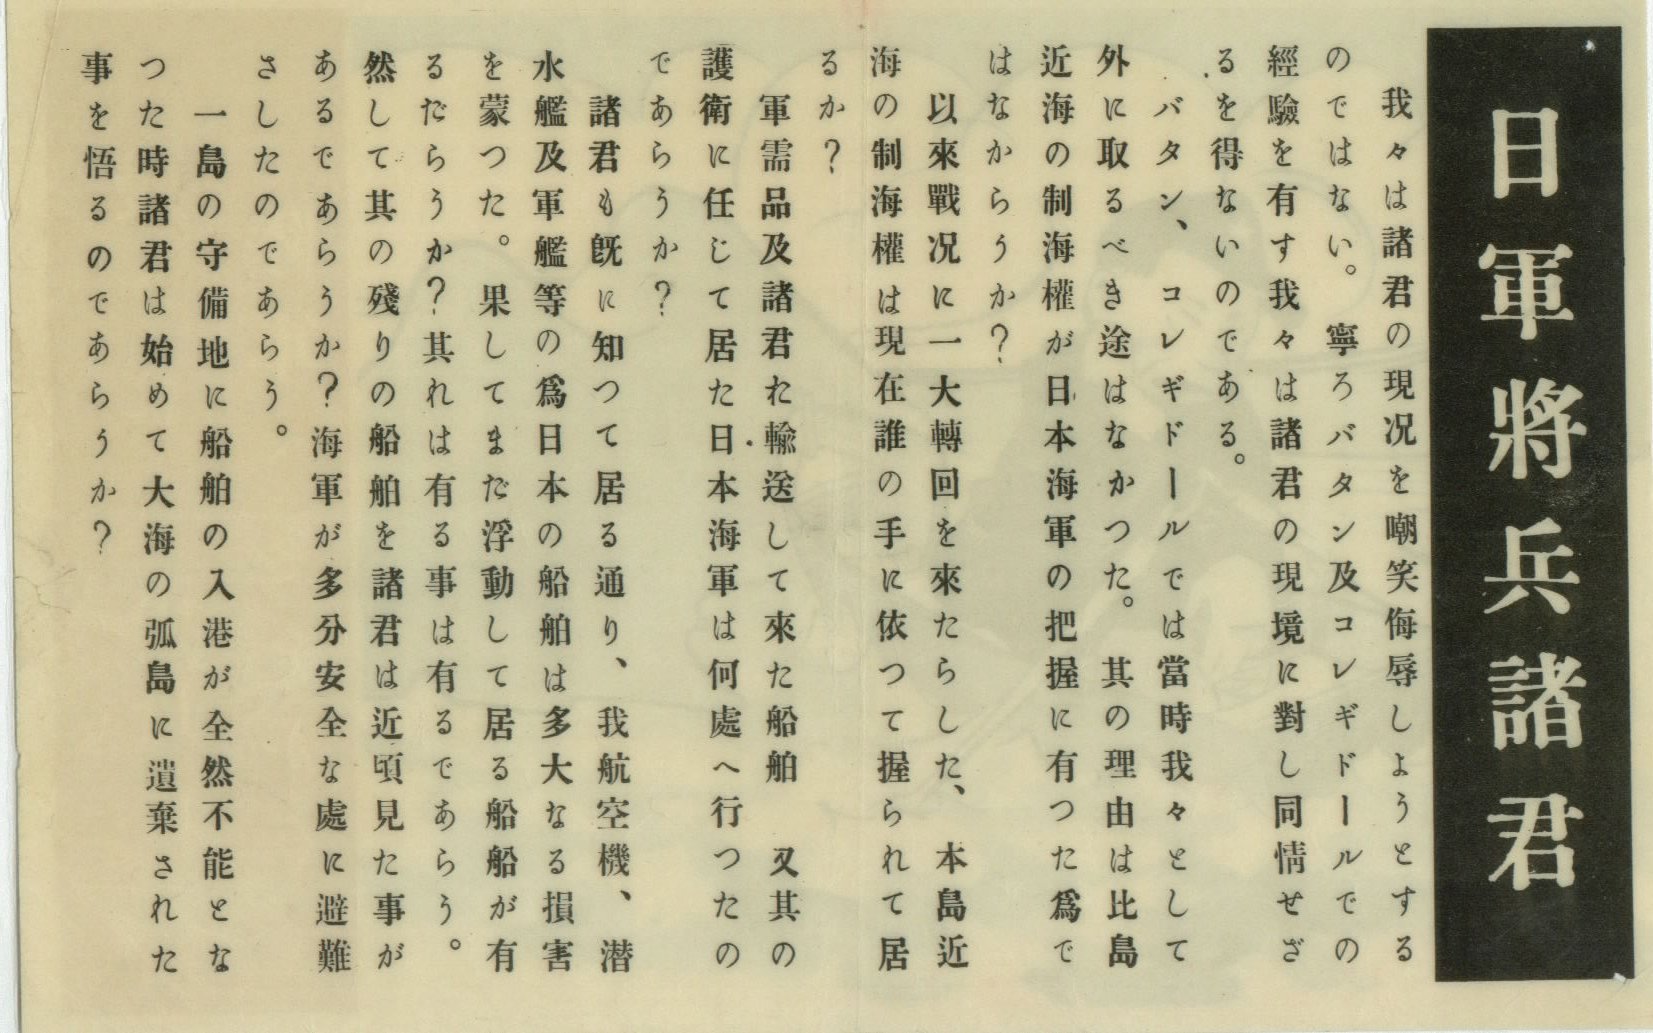 日軍將兵諸君
我々は諸君の現況を嘲笑侮辱しようとする
のではない。寧ろバタン及コレギドールでの
經驗を有す我々は諸君の現境に對し同情せざ
るを得ないのである。
バタン、コレギドールでは當時我々として
外に取るべき途はなかつた。其の理由は比島
近海の制海權が日本海軍の把握に有つた爲で
はなからうか?
以來戰况に一大轉回を來たらした、本島近
海の制海權は現在誰の手に依つて握られて居
るか?
軍需品及諸君れ輸送して來た船舶 又其の
護衛に任じて居た日本海軍は何處へ行つたの
であらうか?
諸君も既に知つて居る通り、我航空機、潜
水艦及軍艦等の爲日本の船舶は多大なる損害
を蒙つた。果してまだ浮動して居る船船が有
るだらうか?其れは有る事は有るであらう。
然して其の殘りの船舶を諸君は近頃見た事が
あるであらうか?海軍が多分安全な處に避難
さしたのであらう。
一島の守備地に船舶の入港が全然不能とな
つた時諸君は始めて大海の弧島に遺棄された
事を悟るのであらうか?